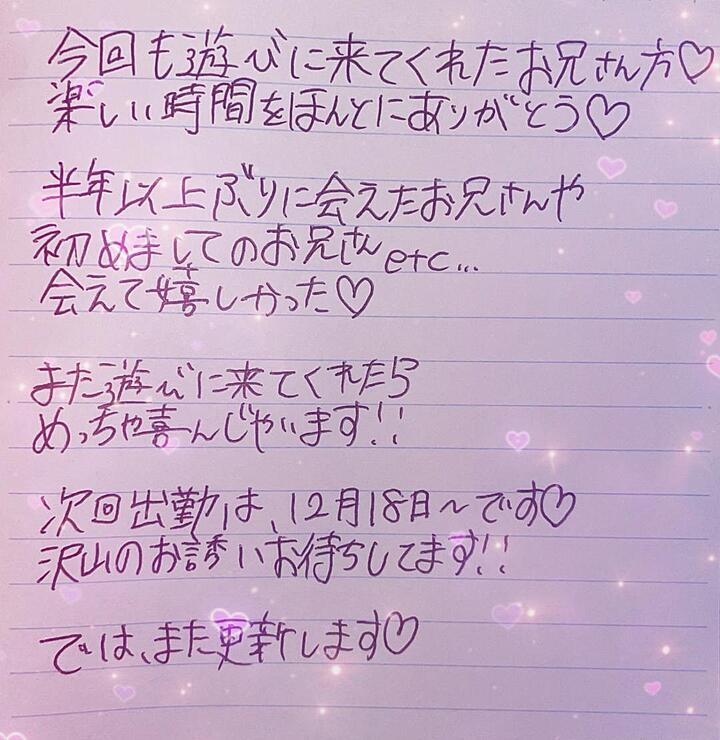 今回も遊びに来てくれたお兄さん方♡
楽しい時間をほんとにありがとう♡
半年以上ぶりに会えたお兄さんや
初めましてのお兄さんetc...
会えて嬉しかった♡
また遊びに来てくれたら
めっちゃ喜んじゃいます!!
次回出勤は、12月18日〜です♡
沢山のお誘いお待ちしてます!!
では、また更新します♡